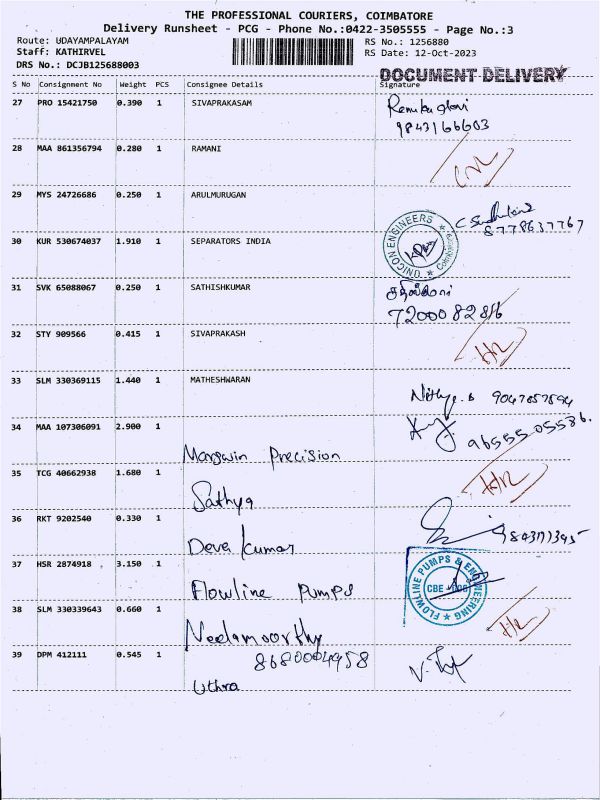 THE PROFESSIONAL COURIERS, COIMBATORE
Delivery Runsheet - PCG - Phone No.:0422-3505555 - Page No.:3
Route: UDAYAMPALAYAM
RS No.: 1256880
Staff: KATHIRVEL
RS Date: 12-Oct-2023
DRS No.: DCJB125688003
DOCUMENT DELIVERY
S No Consignment No Weight PCS Consignee Details Signature
27 PRO 15421750 0.390 1 SIVAPRAKASAM
9843166603
28 MAA 861356794 0.280 1 RAMANI
29 MYS 24726686 0.250 1 ARULMURUGAN
8778637767
30 KUR 530674037 1.910 1 SEPARATORS INDIA
UNICON ENGINEERS ★ Coimbatore ★
31 SVK 65088067 0.250 1 SATHISHKUMAR
7200082816
32 STY 909566 0.415 1 SIVAPRAKASH
33 SLM 330369115 1.440 1 MATHESHWARAN
34 MAA 107306091 2.900 1 Margwin Precision
96555 05586.
35 TCG 40662938 1.680 1 Sathya
36 RKT 9202540 0.330 1 Deva kumar
37 HSR 2874918 3.150 1 Flowline Pumps
FLOWLINE PUMPS & ENGINEERING ★ CBE
38 SLM 330339643 0.660 1 Neelamoorthy
8680004958
39 DPM 412111 0.545 1 Uthra